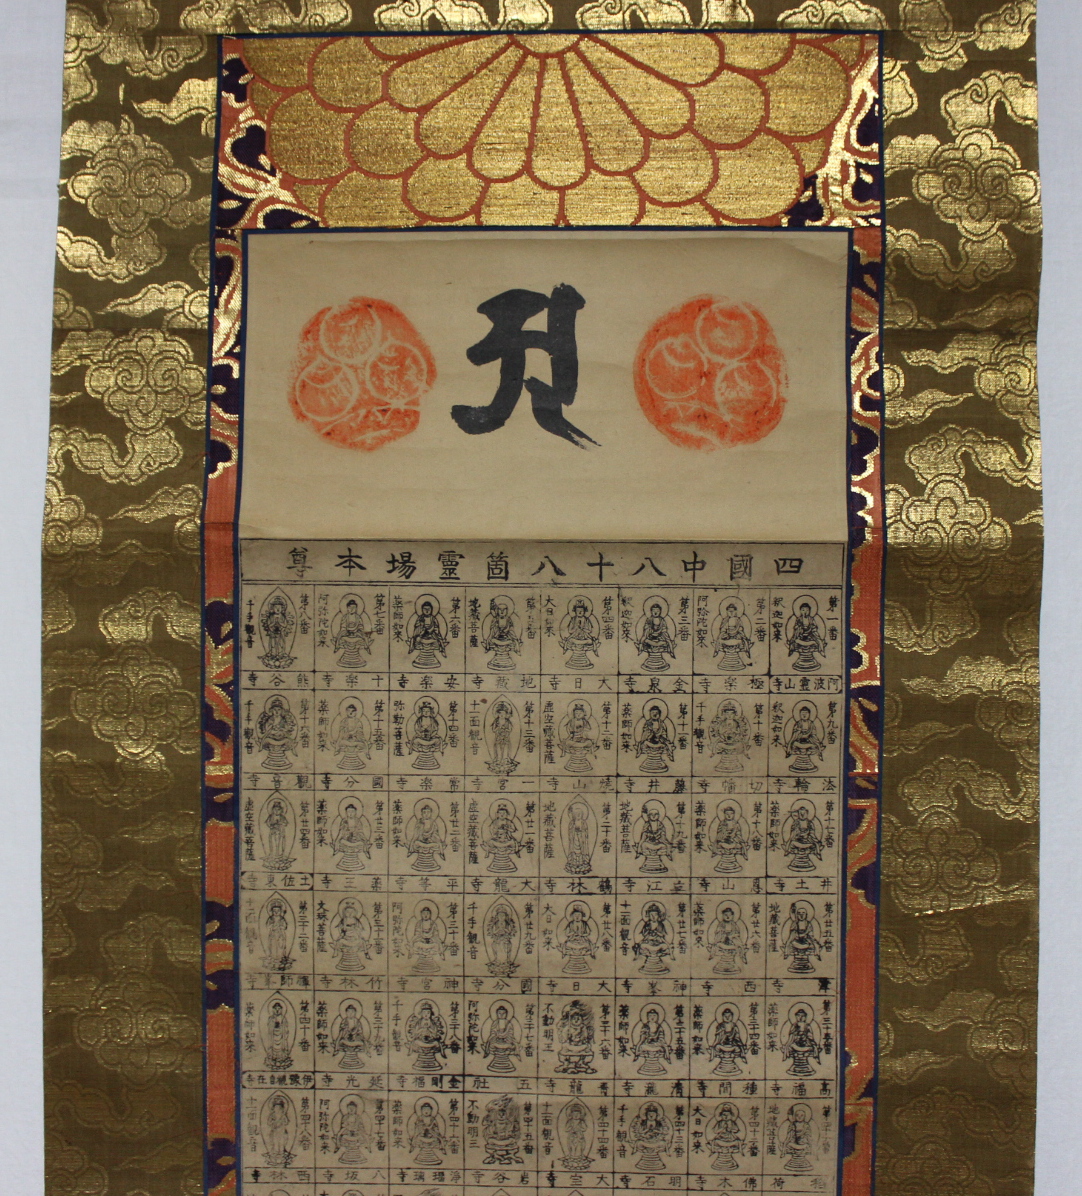 四國中八十八箇靈場本尊
第一番
釈迦如来
阿波靈山寺
第二番
阿弥陀如来
極楽寺
第三番
釈迦如来
金泉寺
第四番
大日如来
大日寺
第五番
地蔵菩薩
地蔵寺
第六番
薬師如来
安楽寺
第七番
阿弥陀如来
十楽寺
第八番
千手観音
熊谷寺
第九番
釈迦如来
法輪寺
第十番
千手観音
切幡寺
第十一番
薬師如来
藤井寺
第十二番
虚空蔵菩薩
焼山寺
第十三番
十一面観音
一宮寺
第十四番
弥勒菩薩
常楽寺
第十五番
薬師如来
國分寺
第十六番
千手観音
観音寺
第十七番
薬師如来
井土寺
第十八番
薬師如来
恩山寺
第十九番
地蔵菩薩
立江寺
第二十番
地蔵菩薩
鶴林寺
第廿一番
虚空蔵菩薩
大龍寺
第廿二番
薬師如来
平等寺
第廿三番
薬師如来
薬王寺
第廿四番
虚空蔵菩薩
土佐東寺
第廿五番
地蔵菩薩
津寺
第廿六番
薬師如来
西寺
第廿七番
十一面観音
神峯寺
第廿八番
大日如来
大日寺
第廿九番
千手観音
國分寺
第三十番
阿弥陀如来
神宮寺
第三十一番
文殊菩薩
竹林寺
第三十二番
十一面観音
禅師峯寺
第三十三番
薬師如来
高福寺
第三十四番
薬師如来
種間寺
第三十五番
薬師如来
清瀧寺
第三十六番
不動明王
青龍寺
第三十七番
阿弥陀如来
五社
第三十八番
千手観音
金剛福寺
第三十九番
薬師如来
延光寺
第四十番
薬師如来
伊豫観自在寺
第四十一番
地蔵菩薩
稲荷
第四十二番
大日如来
佛木寺
第四十三番
千手観音
明石寺
第四十四番
十一面観音
大宝寺
第四十五番
不動明王
岩谷寺
第四十六番
薬師如来
浄瑠璃寺
第四十七番
阿弥陀如来
八坂寺
第四十八番
十一面観音
西林寺